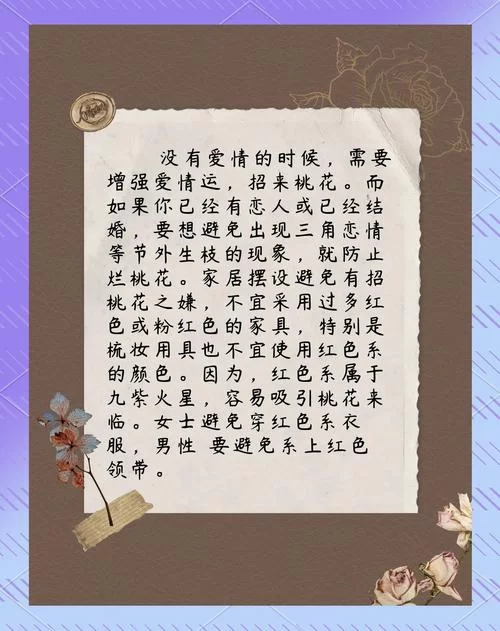 没有爱情的时候，需要
增强爱情运，招来桃花。而
如果你已经有恋人或已经结
婚，要想避免出现三角恋情
等节外生枝的现象，就防止
烂桃花。家居摆设避免有招
桃花之嫌，不宜采用过多红
色或粉红色的家具，特别是
梳妆用具也不宜使用红色系
的颜色。因为，红色系属于
九紫火星，容易吸引桃花来
临。女士避免穿红色系衣
服，男性 要避免系上红色
领带。